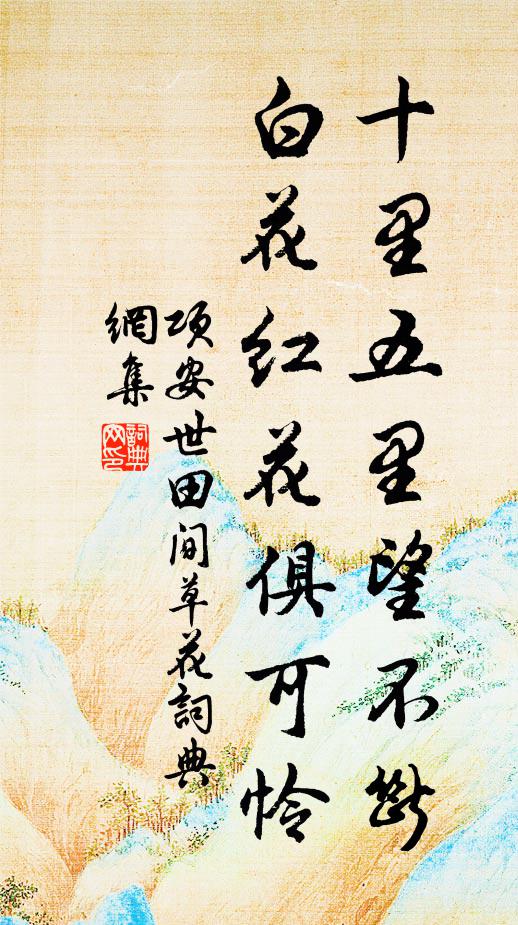 十里五里望不斷
白花红花俱可怜
项安世田间草花詞典
網集
詞典网印